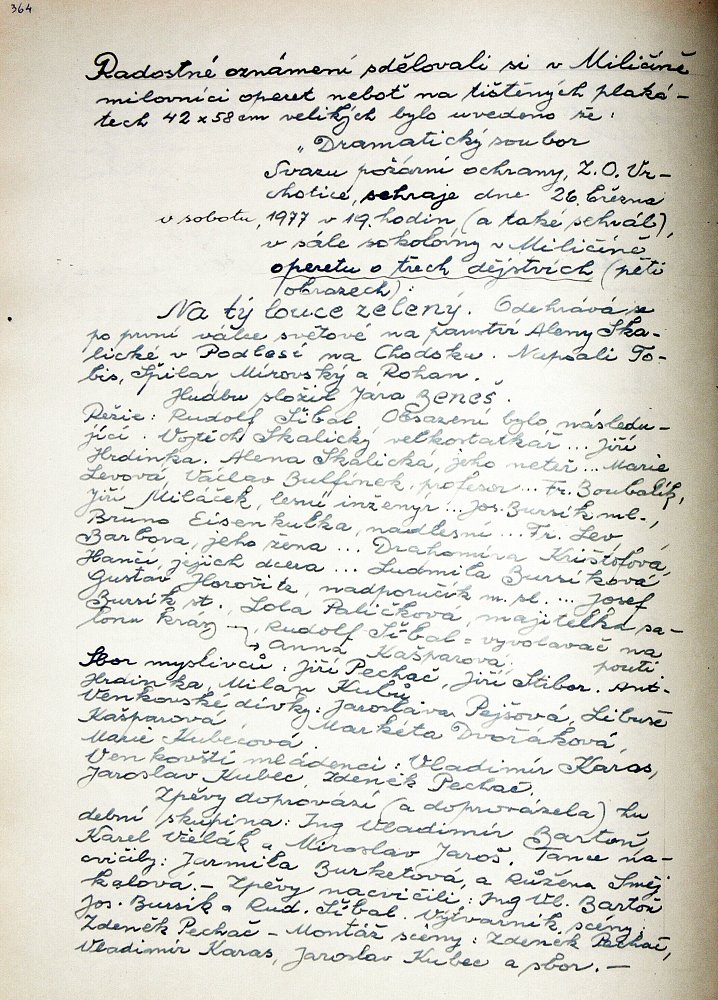 364
Radostné oznámení sdělovali si v Miličíně
milovníci operet neboť na tištěných plaká-
tech 42 x 58 cm velikých bylo uvedeno že:
"Dramatický soubor
Svazu požární ochrany, Z.O. Vr-
chotice, sehraje dne 26. března
v sobotu, 1977 v 19. hodin (a také sehrál),
v sále sokolovny v Miličíně
operetu o třech dějstvích (pěti
obrazech):
Na tý louce zelený. Odehrává se
po první válce světové na panství Aleny Ska-
lické v Podlesí na Chodsku. Napsali To-
bis, Špilar Mírovský a Rohan.
Hudbu složil Jára Beneš.
Režie: Rudolf Šíbal. Obsazení bylo, následu-
jící. Vojtěch Skalický velkostatkář ... Jiří
Hrdinka. Alena Skalická, jeho neteř ... Marie
Levová, Václav Bulfínek, profesor ... Fr. Boubalík,
Jiří Miláček, lesní inženýr ... Jos. Bursík ml.,
Bruno Eisenkulka, nadlesní ... Fr. Lev
Barbora, jeho žena ... Drahomíra Krištofová,
Hančí, jejich dcera ... Ludmila Bursíková,
Gustav Horovitz, nadporučík m. sl. ... Josef
Bursík st., Lola Paličková, majitelka sa-
lonu krásy , Rudolf Šíbal = vyvolavač na
Anna Kašparova. pouti
Sbor myslivců: Jiří Pechač, Jiří Stibor. Ant-
Hrdinka, Milan Kubů
Venkovské dívky: Jaroslava Pejšová, Libuše
Kašparová Markéta Dvořáková,
Marie Kubecová
Venkovští mládenci: Vladimír Karas,
Jaroslav Kubec Zdeněk Pechač.
Zpěvy doprovází (a doprovázela) hu
dební skupina: Ing Vladimír Bartoň,
Karel Včelák a Miroslav Jaroš. Tance na-
cvičily: Jarmila Burketová, a Růžena Smej
kalová. - Zpěvy nacvičili: Ing Vl. Bartoň
Jos. Bursík a Rud. Šíbal. Výtvarník scény:
Zdeněk Pechač - Montáž scény: Zdeněk Pechač,
Vladimír Karas, Jaroslav Kubec a sbor. -